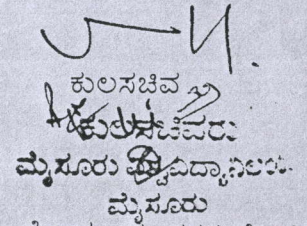 ಕುಲಸಚಿವ
ಕುಲಸಚಿವರು
ಮೈಸೂರು ವಿಶ್ವವಿದ್ಯಾನಿಲಯ
ಮೈಸೂರು